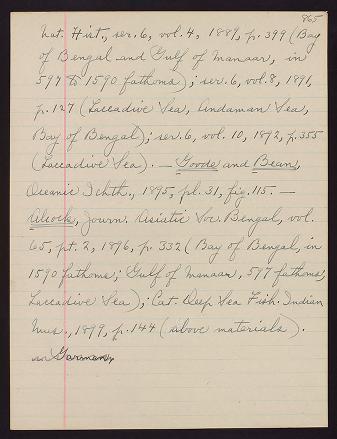 865
Nat. Hist., ser. 6, vol. 4, 1889, p. 399 (Bay
of Bengal and Gulf of Manaar, in
597 to 1590 fathoms); ser. 6, vol. 8, 1891,
p. 127 (Laccadive Sea, Andaman Sea,
Bay of Bengal); ser. 6, vol. 10, 1892, p. 355
(Laccadive Sea). — Goode and Bean,
Oceanic Ichth., 1895, pl. 31, fig. 115. —
Alcock, Journ. Asiatic Soc. Bengal, vol.
65, pt. 2, 1896, p. 332 (Bay of Bengal, in
1590 fathoms; Gulf of Manaar, 597 fathoms,
Laccadive Sea); Cat. Deep Sea Fish. Indian
Mus., 1899, p. 144 (above materials).
Garman,